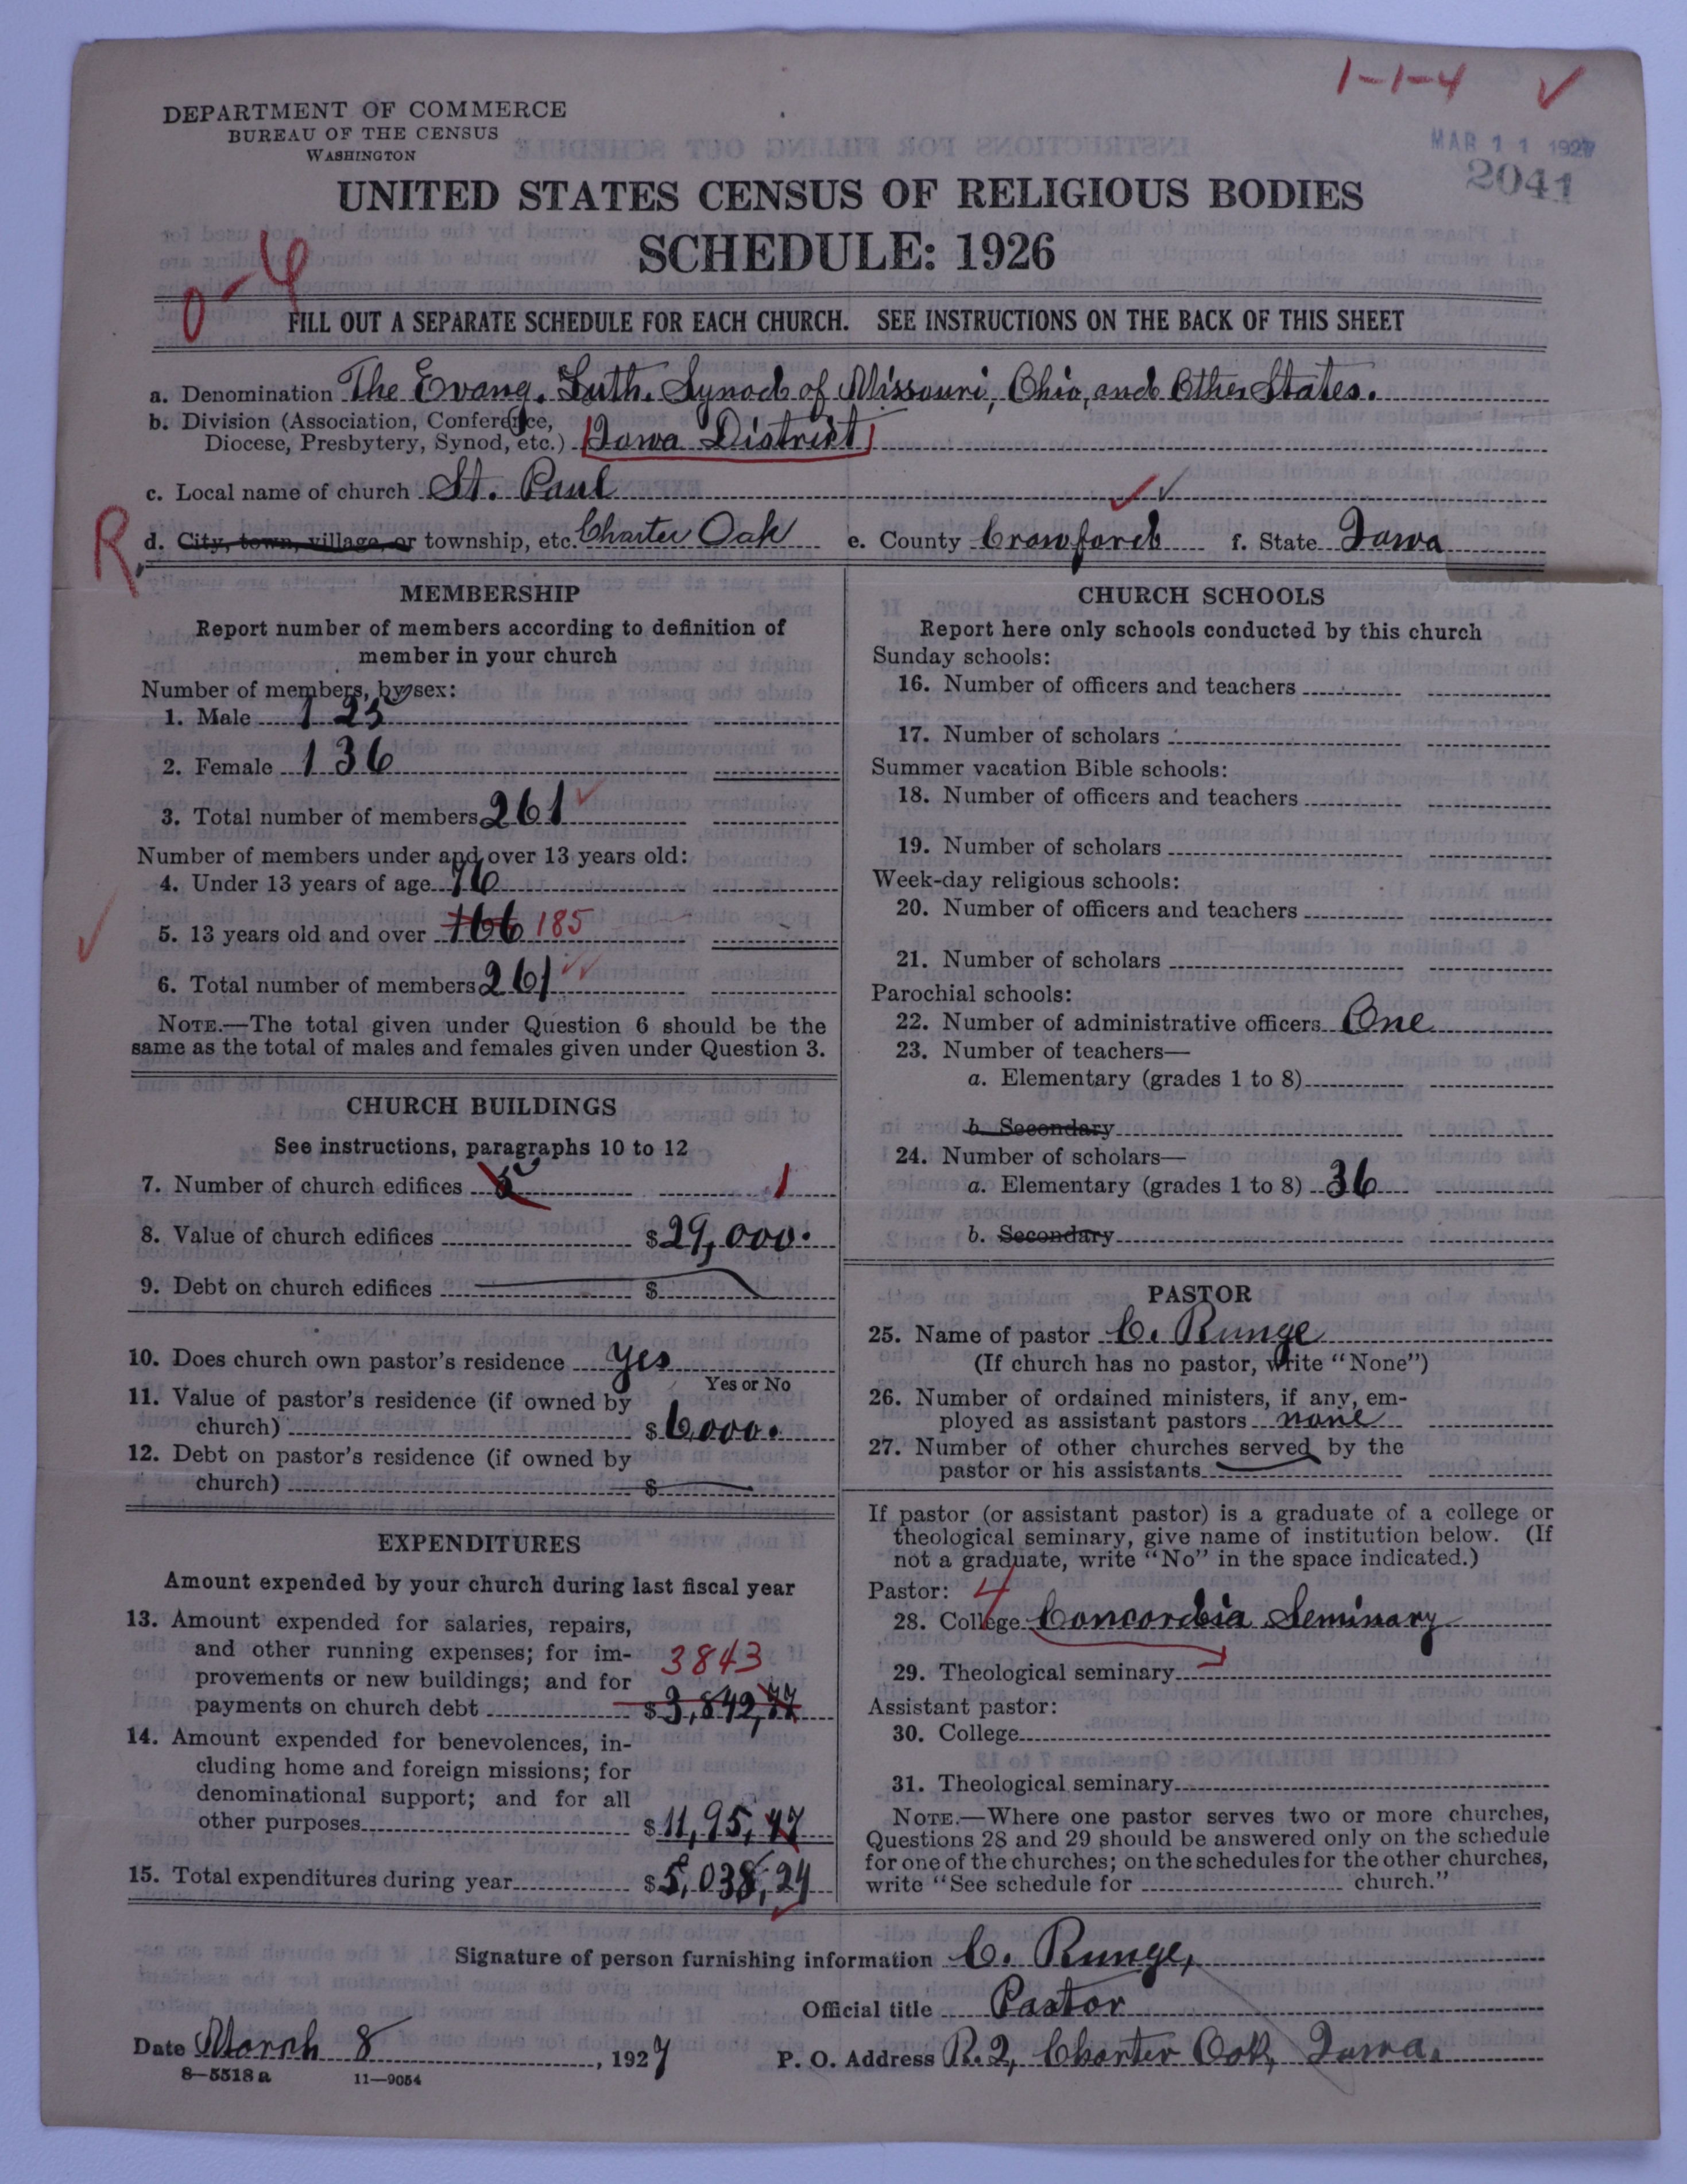 1-1-4 ✓
DEPARTMENT OF COMMERCE
BUREAU OF THE CENSUS
WASHINGTON
MAR 11 1927
2041
UNITED STATES CENSUS OF RELIGIOUS BODIES
SCHEDULE: 1926
0-4
FILL OUT A SEPARATE SCHEDULE FOR EACH CHURCH. SEE INSTRUCTIONS ON THE BACK OF THIS SHEET
a. Denomination The Evang. Luth. Synod of Missouri, Ohio, and Other States.
b. Division (Association, Conference,
Diocese, Presbytery, Synod, etc.) Iowa District
c. Local name of church St. Paul
R. d. City, town, village, or township, etc. Charter Oak e. County Crawford f. State Iowa
MEMBERSHIP
Report number of members according to definition of
member in your church
Number of members, by sex:
1. Male 125
2. Female 136
3. Total number of members 261
Number of members under and over 13 years old:
4. Under 13 years of age 76
5. 13 years old and over 166 185
6. Total number of members 261
NOTE.—The total given under Question 6 should be the
same as the total of males and females given under Question 3.
CHURCH BUILDINGS
See instructions, paragraphs 10 to 12
7. Number of church edifices 5 1
8. Value of church edifices $29,000.
9. Debt on church edifices $
10. Does church own pastor's residence yes
Yes or No
11. Value of pastor's residence (if owned by
church) $6,000.
12. Debt on pastor's residence (if owned by
church) $
EXPENDITURES
Amount expended by your church during last fiscal year
13. Amount expended for salaries, repairs,
and other running expenses; for im-
provements or new buildings; and for 3843
payments on church debt $3,842,77
14. Amount expended for benevolences, in-
cluding home and foreign missions; for
denominational support; and for all
other purposes $11,95,47
15. Total expenditures during year $5,038,24
CHURCH SCHOOLS
Report here only schools conducted by this church
Sunday schools:
16. Number of officers and teachers
17. Number of scholars
Summer vacation Bible schools:
18. Number of officers and teachers
19. Number of scholars
Week-day religious schools:
20. Number of officers and teachers
21. Number of scholars
Parochial schools:
22. Number of administrative officers One
23. Number of teachers—
a. Elementary (grades 1 to 8)
b. Secondary
24. Number of scholars—
a. Elementary (grades 1 to 8) 36
b. Secondary
PASTOR
25. Name of pastor C. Runge
(If church has no pastor, write "None")
26. Number of ordained ministers, if any, em-
ployed as assistant pastors none
27. Number of other churches served by the
pastor or his assistants
If pastor (or assistant pastor) is a graduate of a college or
theological seminary, give name of institution below. (If
not a graduate, write "No" in the space indicated.)
Pastor: 4
28. College Concordia Seminary
29. Theological seminary
Assistant pastor:
30. College
31. Theological seminary
NOTE.—Where one pastor serves two or more churches,
Questions 28 and 29 should be answered only on the schedule
for one of the churches; on the schedules for the other churches,
write "See schedule for church."
Signature of person furnishing information C. Runge,
Official title Pastor
Date March 8, 1927 P. O. Address R. 2, Charter Oak, Iowa.
8—5518 a 11—9054